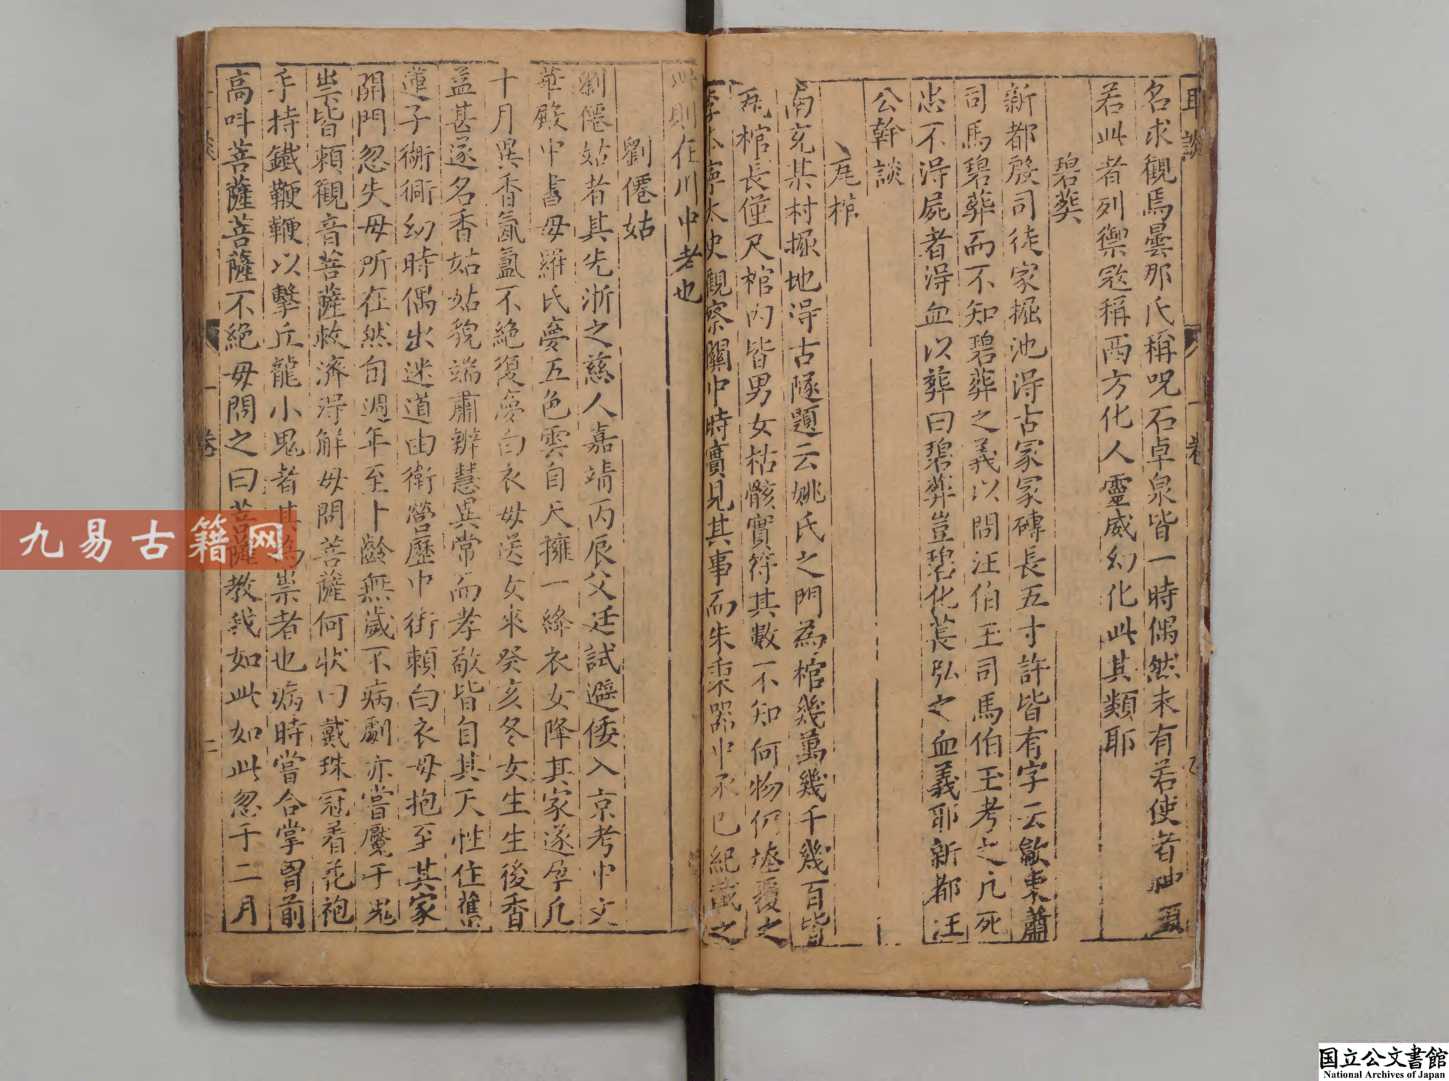 耳談
名求觀馬曇那氏稱呪石卓泉皆一時偶然未有若使者神
若此者列禦寇稱西方化人靈威幻化此其類耶
碧葬
新都殷司徒家掘池淂古冢冢磚長五寸許皆有字云歙東蕭
司馬碧葬而不知碧葬之義以問汪伯玉司馬伯玉考之凡死
忠不淂屍者淂血以葬曰碧葬豈碧化萇弘之血義耶新都汪
公幹談
瓦棺
南充某村掘地淂古隧題云姚氏之門為棺幾萬幾千幾百皆
瓦棺長僅尺棺內皆男女枯骸實符其數不知何物仍瘞覆之
李本寧太史觀察關中時實見其事而朱秉器中丞已紀載之
此則在川中者也
劉僊姑
劉僊姑者其先浙之慈人嘉靖丙辰父廷試避倭入京考中文
華殿中書母羅氏夢五色雲自天擁一絳衣女降其家遂孕凡
十月異香氤氳不絕復夢白衣母送女來癸亥冬女生生後香
益甚遂名香姑姑貌端肅辨慧異常而孝敬皆自其天性住舊
蓮子衚衕幼時偶出迷道由衛營歷中街賴白衣母抱至其家
開門忽失母所在然自週年至卜齡無歲不病劇亦嘗魘于鬼
祟皆賴觀音菩薩救濟淂解母問菩薩何狀曰戴珠冠看花袍
手持鐵鞭鞭以擊丘龍小鬼者其為祟者也病時嘗合掌胷前
高呌菩薩菩薩不絕母問之曰菩薩教我如此如此忽于二月
一卷
九易古籍网
国立公文書館
National Archives of Japan